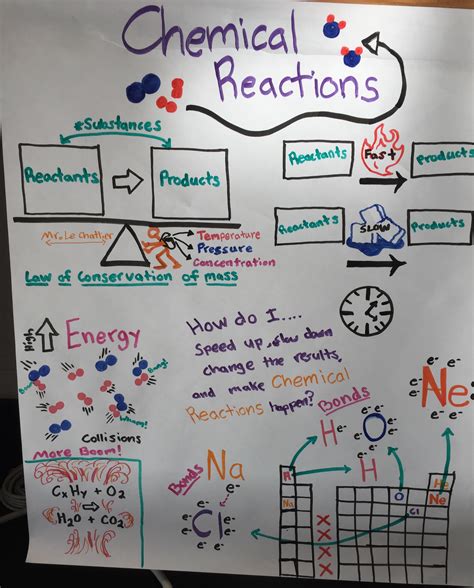 Chemical
Reactions
*Substances
Reactants
Products
Reactants
Fast
Products
Reactants
SLOW
Products
Mr. Le Chatlier
Temperature
Pressure
Concentration
Law of Conservation of mass
High
Energy
Bang!
Whamo!
Collisions
More Boom!
CxHy + O2
H2O + CO2
How do I....
Speed up, slow down
change the results,
and make Chemical
Reactions happen?
Bonds
H
O
H
e-
e-
e-
e-
e-
e-
e-
e-
Ne
e-
e-
e-
e-
e-
e-
e-
e-
Bonds
Na
e-
e-
e-
Cl
e-
e-
e-
e-
e-
H
Na
O
Cl
He
Ne
X
X
X
X